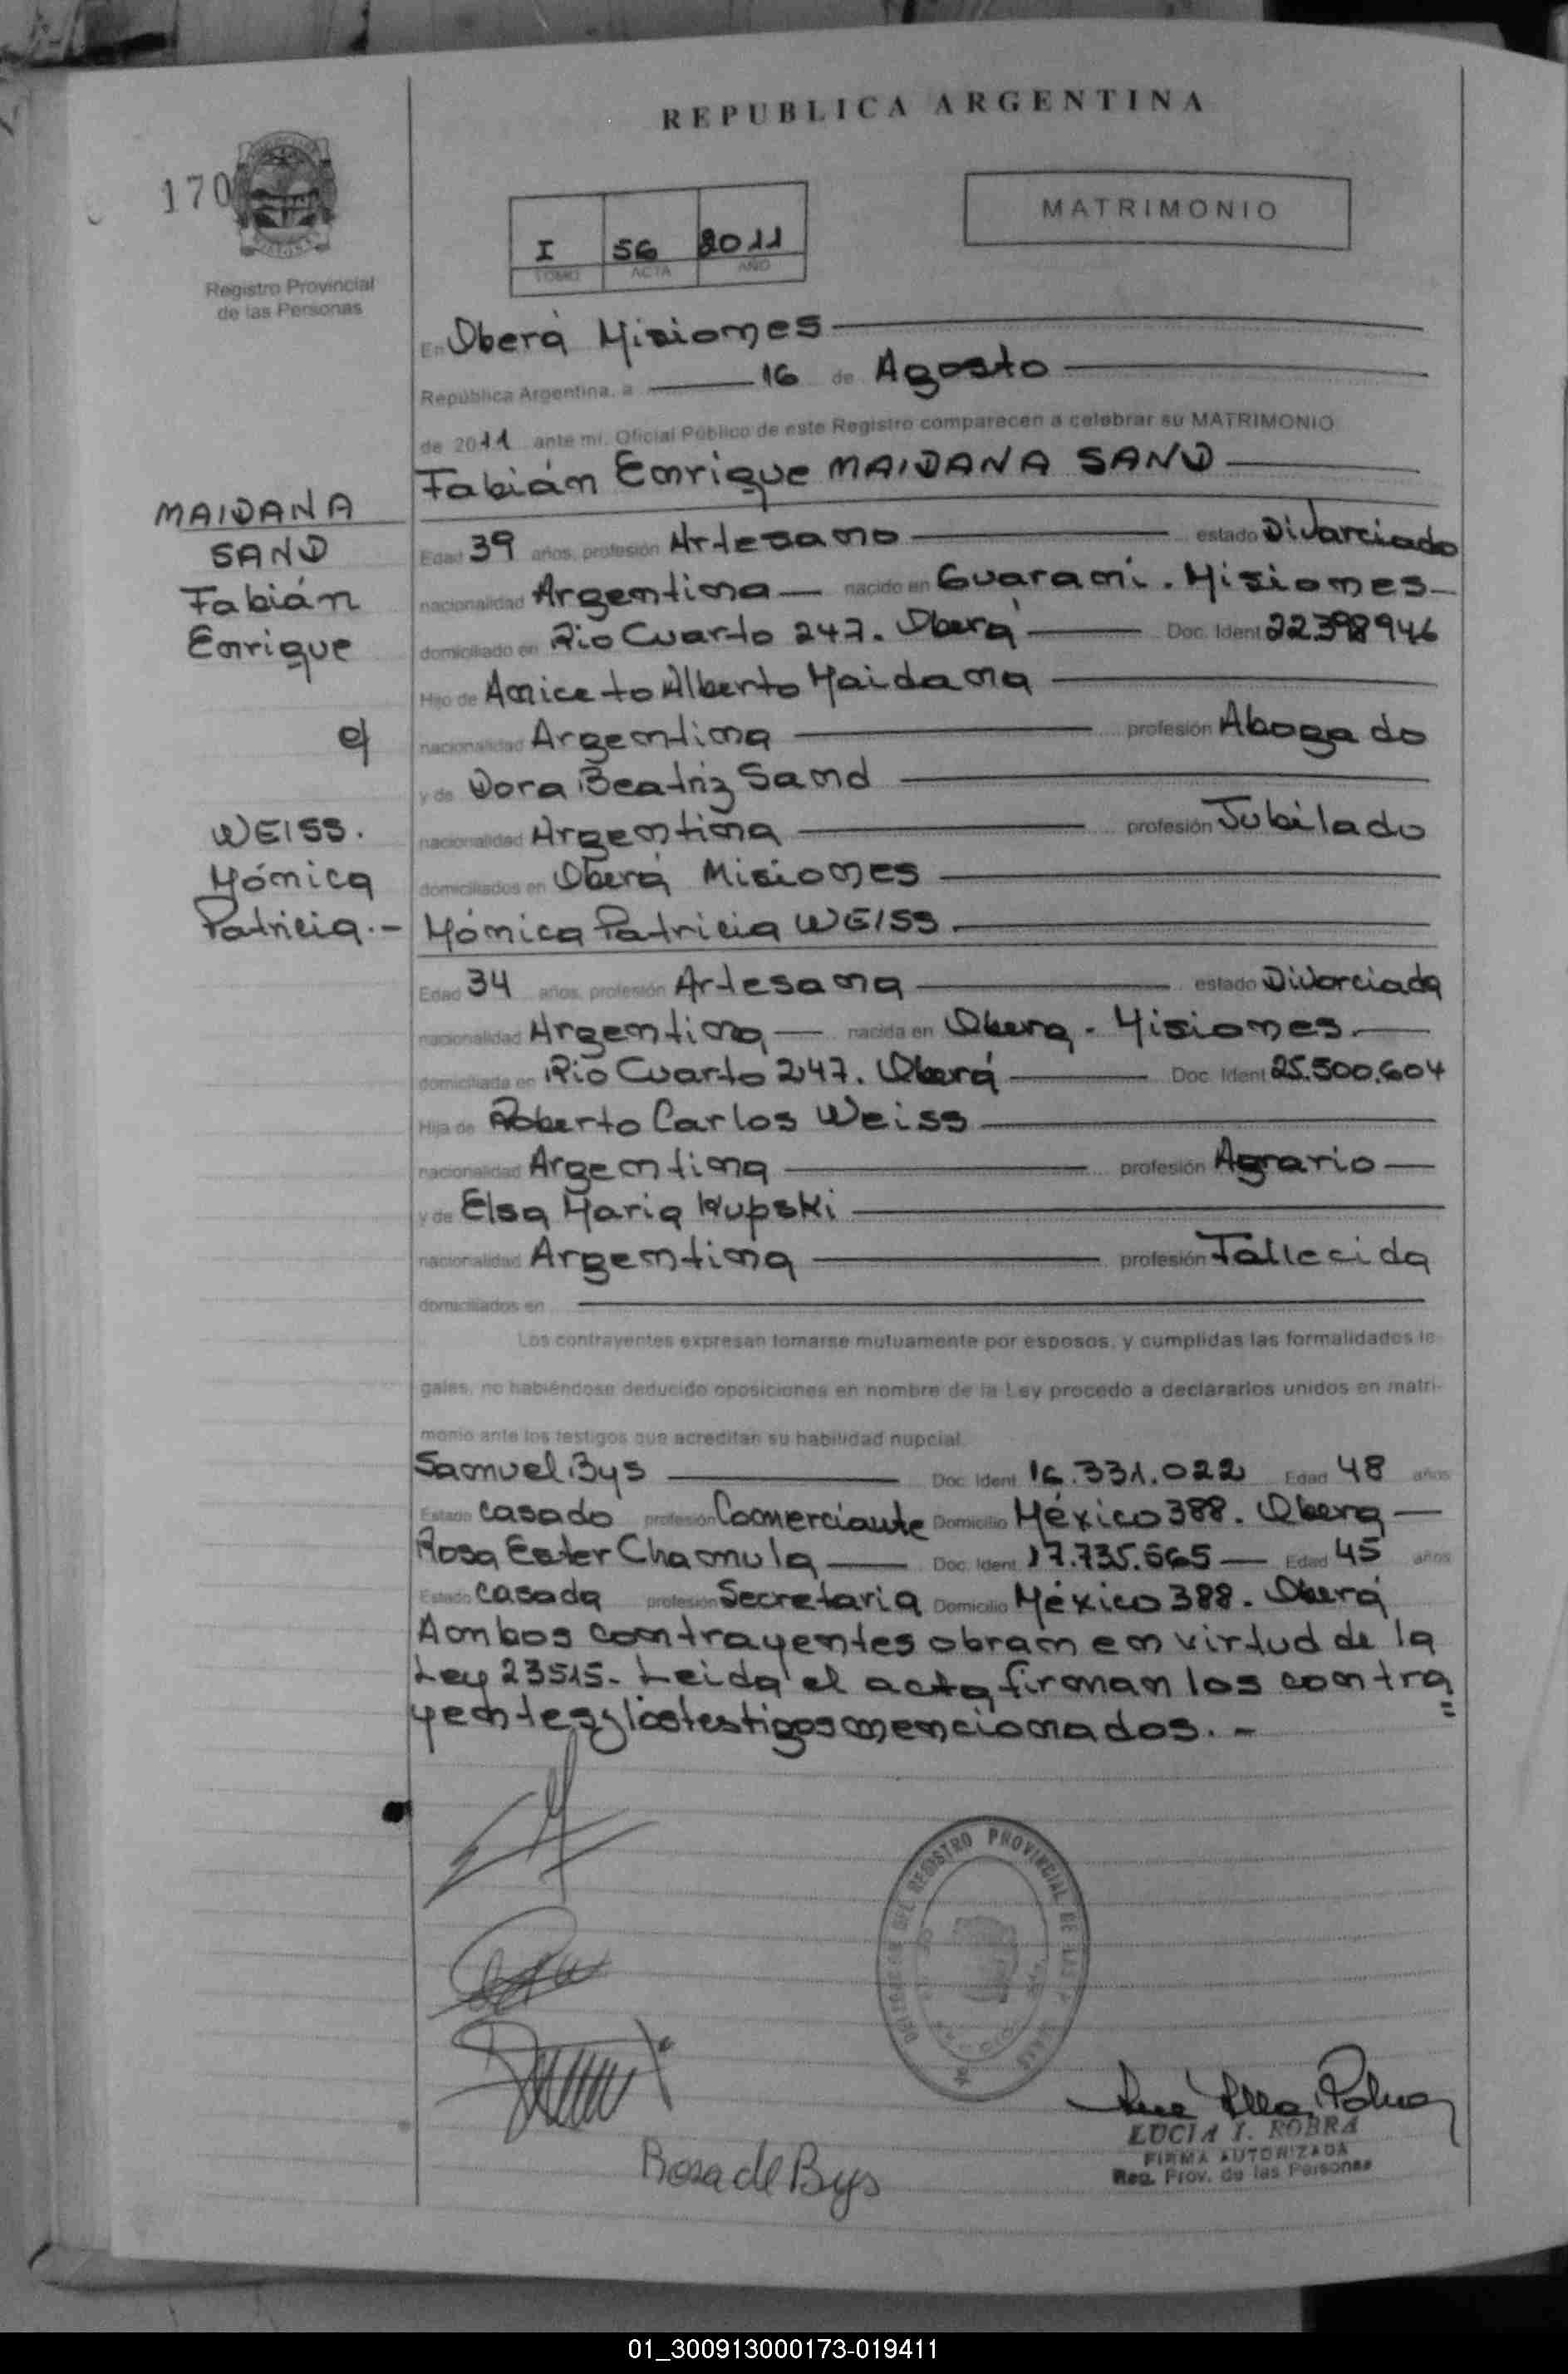 REPUBLICA ARGENTINA
170
Registro Provincial
de las Personas
MATRIMONIO
I 56 2011
TOMO ACTA AÑO
En Oberá Misiones
República Argentina, a 16 de Agosto
de 2011 ante mí, Oficial Público de este Registro comparecen a celebrar su MATRIMONIO
Fabián Enrique MAIDANA SAND
MAIDANA
SAND
Fabián
Enrique
c/
WEISS.
Mónica
Patricia.-
Edad 39 años, profesión Artesano estado Divorciado
nacionalidad Argentina nacido en Guaraní. Misiones
domiciliado en Rio Cuarto 247. Oberá Doc. Ident 22.398946
Hijo de Aniceto Alberto Maidana
nacionalidad Argentina profesión Abogado
y de Dora Beatriz Sand
nacionalidad Argentina profesión Jubilado
domiciliados en Oberá Misiones
Mónica Patricia WEISS.
Edad 34 años, profesión Artesana estado Divorciada
nacionalidad Argentina nacida en Obera. Misiones.
domiciliada en Rio Cuarto 247. Oberá Doc. Ident 25.500.604
Hija de Roberto Carlos Weiss
nacionalidad Argentina profesión Agrario
y de Elsa Maria Kupski
nacionalidad Argentina profesión Fallecida
domiciliados en
Los contrayentes expresan tomarse mutuamente por esposos, y cumplidas las formalidades le-
gales, no habiéndose deducido oposiciones en nombre de la Ley procedo a declararlos unidos en matri-
monio ante los testigos que acreditan su habilidad nupcial.
Samuel Bys Doc. Ident. 16.331.022 Edad 48 años
Estado casado profesión Comerciante Domicilio México 388. Obera
Rosa Ester Chamula Doc. Ident. 17.735.565 Edad 45 años
Estado casada profesión Secretaria Domicilio México 388. Oberá
Ambos contrayentes obran en virtud de la
Ley 23515- Leida el acta firman los contra=
yentes y los testigos mencionados.-
REGISTRO PROVINCIAL DE LAS
Rosa de Bys
LUCIA I. ROBRA
FIRMA AUTORIZADA
Reg. Prov. de las Personas
01_300913000173-019411